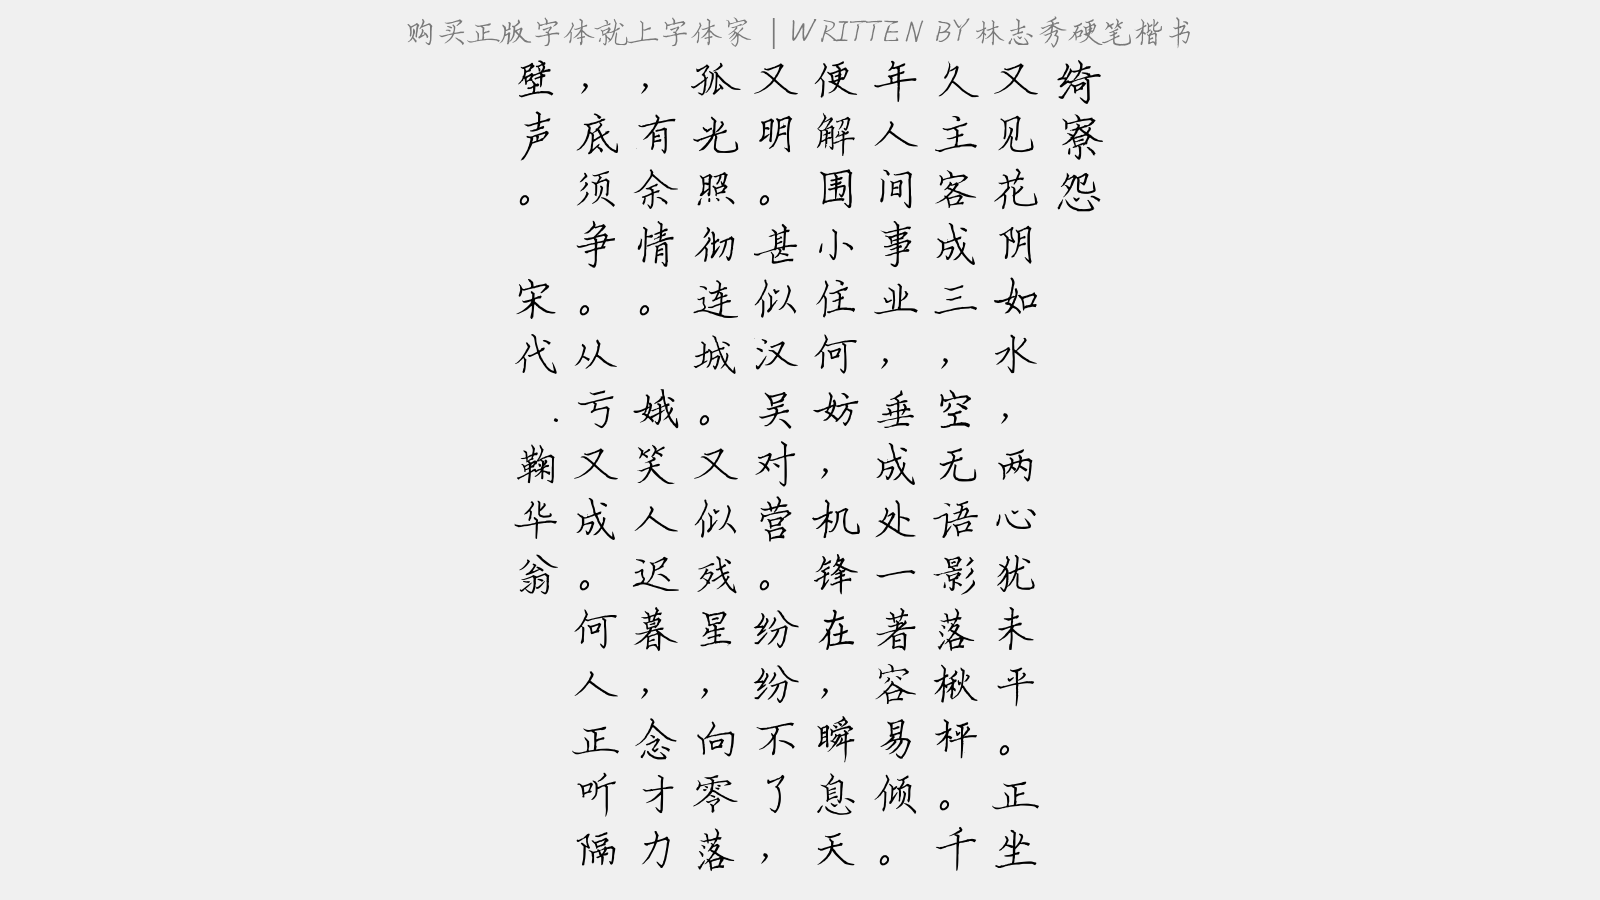 购买正版字体就上字体家 | WRITTEN BY 林志秀硬笔楷书
绮寮怨
又见花阴如水，两心犹未平。正坐
久主客成三，空无语影落楸枰。千
年人间事业，垂成处一著容易倾。
便解围小住何妨，机锋在，瞬息天
又明。甚似汉吴对营。纷纷不了，
孤光照彻连城。又似残星，向零落
，有余情。 娥笑人迟暮，念才力
，底须争。从亏又成。何人正听隔
壁声。 宋代 . 鞠华翁